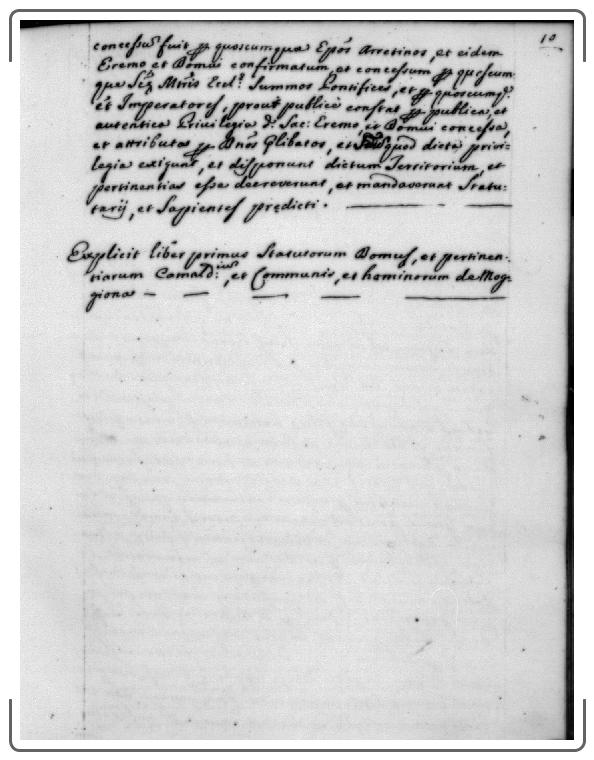 10
concessũ fuit ꝑ quoscumque Epõs Arretinos, et eidem
Eremo et Domui confirmatum et concessum ꝑ quoscum:
que Mtris Eccl. Summos Pontifices, et ꝑ quoscumq.
et Imperatores, prout publicè constat ꝑ publica, et
autentica Privilegia d. Sac: Eremo, et Domui concessa,
et attributa ꝑ Dños et quod dicta privi:
legia exigunt, et disponunt dictum Territorium, et
pertinentias esse decreverunt, et mandaverunt Statu:
tarij, et Sapientes prędicti.
Explicit liber primus Statutorum Domus, et pertinen:
tiarum Camald:, et Communis, et hominorum de Mog:
giona